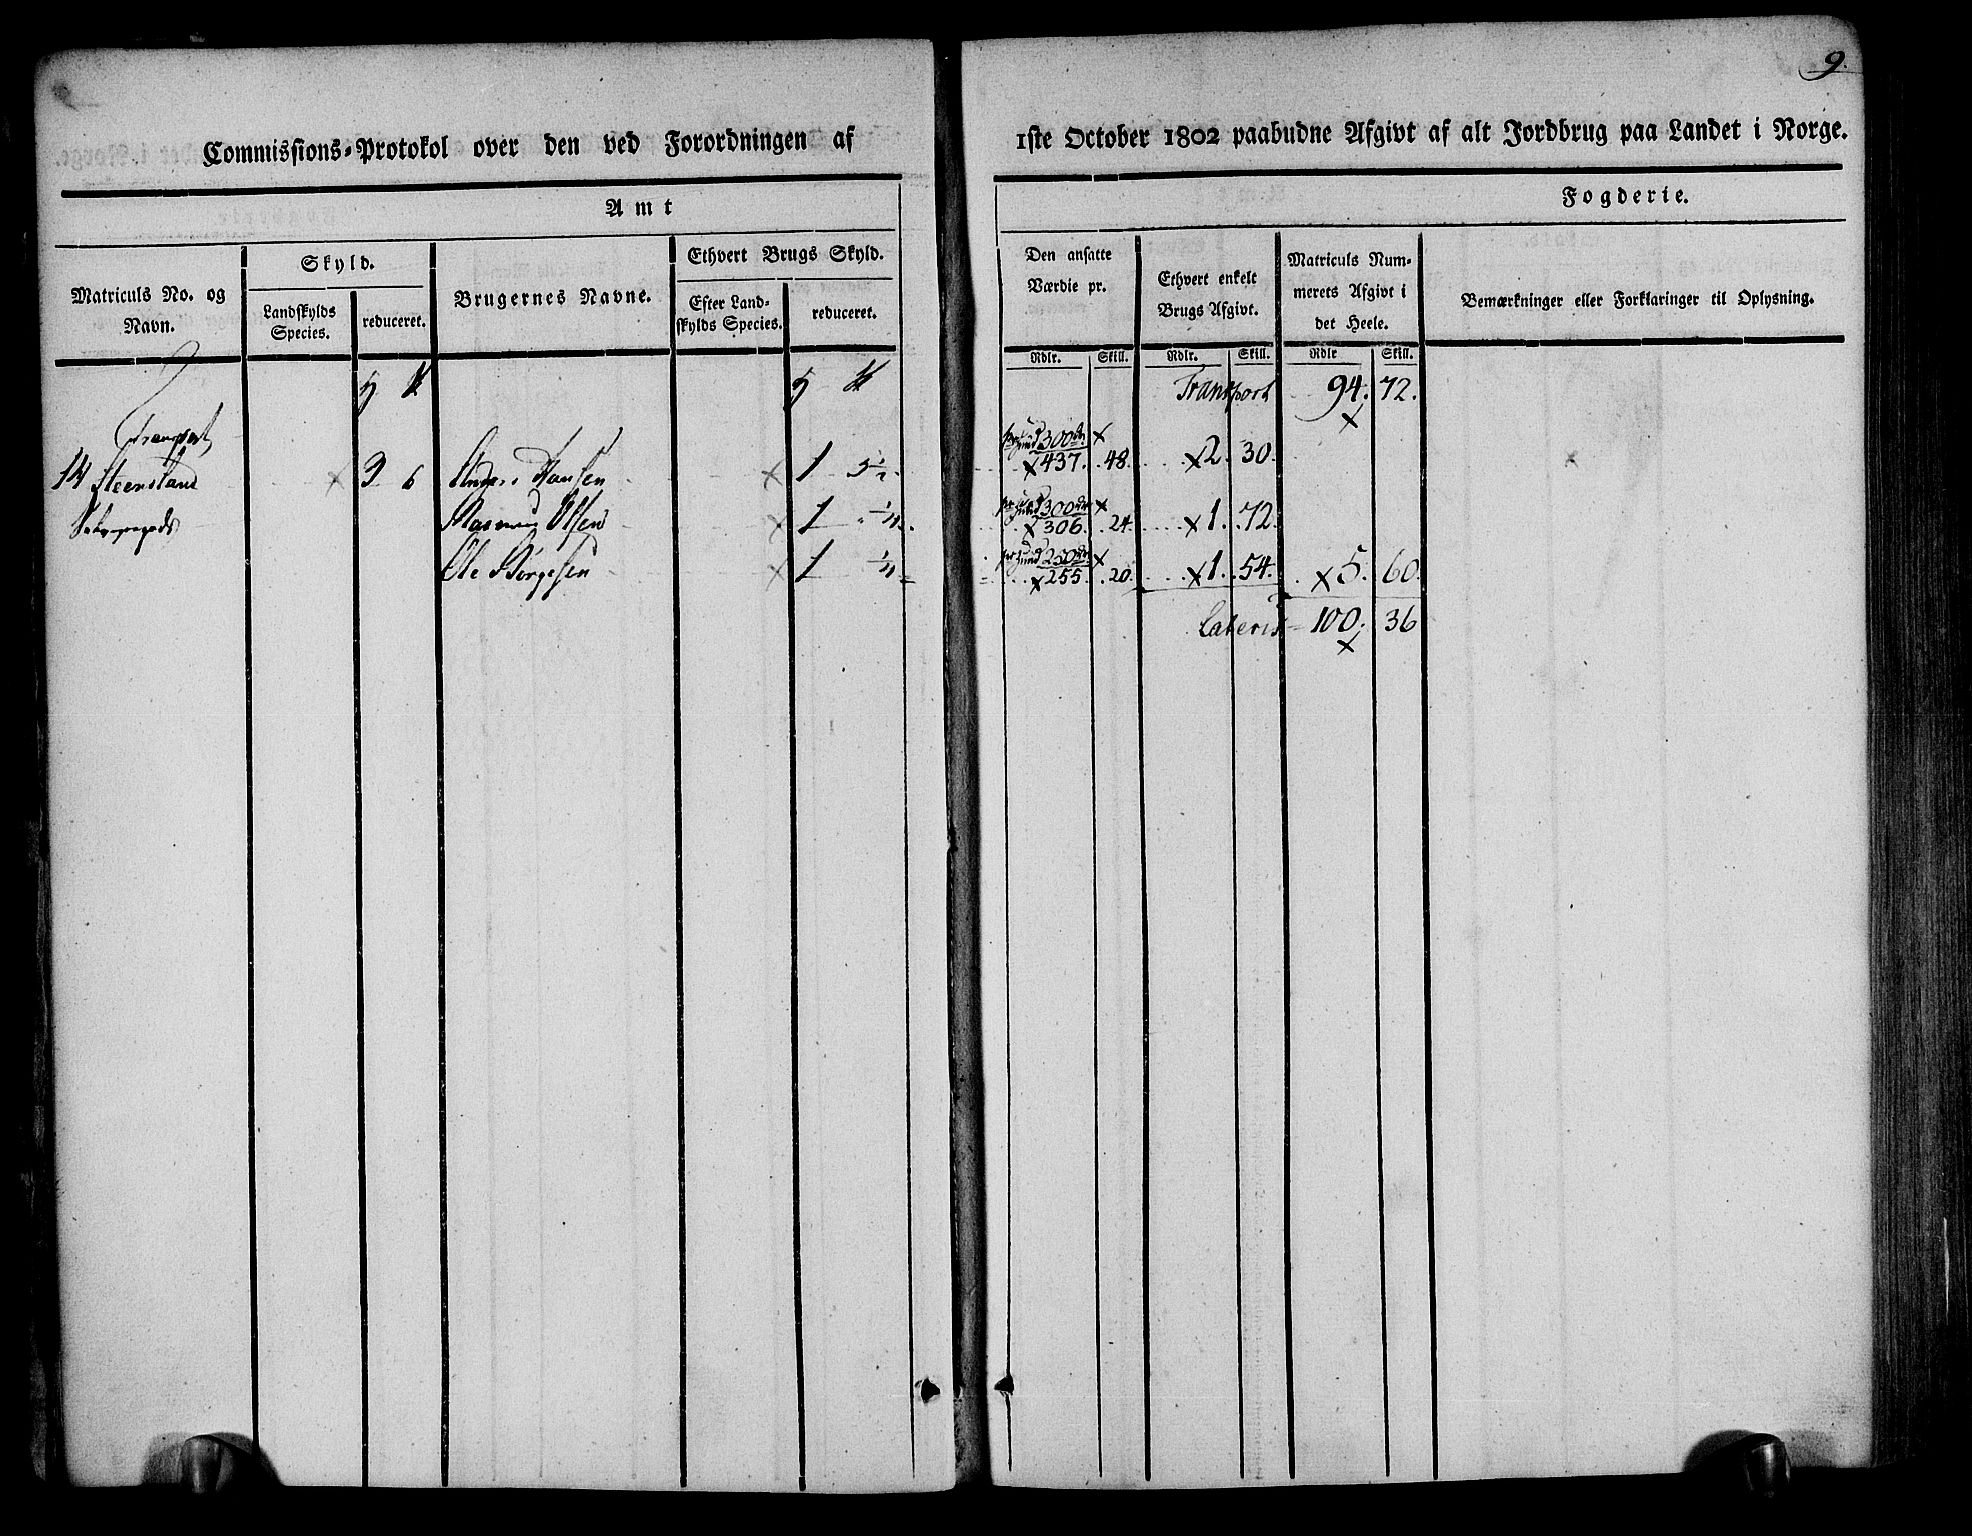 9.
Commissions-Protokol over den ved Forordningen af
1ste October 1802 paabudne Afgivt af alt Jordbrug paa Landet i Norge.
Amt
Fogderie.
Matriculs No. og Navn.
Skyld.
Landskylds Species.
reduceret.
Brugernes Navne.
Ethvert Brugs Skyld.
Efter Landskylds Species.
reduceret.
Den ansatte Værdie pr.
Rdlr. Skill.
Ethvert enkelt Brugs Afgivt.
Rdlr. Skill.
Matriculs Nummerets Afgivt i det Heele.
Rdlr Skill.
Bemærkninger eller Forklaringer til Oplysning.
Transport 94. 72.
Transport
14 Steensland 3 6 Hansen 1 5 1/2 300 437. 48. 2. 30.
Rasmus Olsen 1 300 306. 24. 1. 72.
Ole Børgesen 1 250 255. 20. 1. 54. 5. 60.
Lateris 100. 36